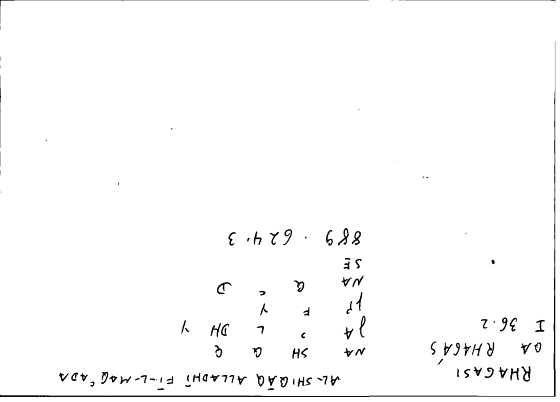 RHAGASI
OA RHAGÁS
I 36.2
AL-SHIQĀQ ALLADHĪ FĪ-L-MAQʿADA
NA SH Q Q
JA ʾ L DH Y
F Y
NA Q ʿ D
SE
889 . 624.3